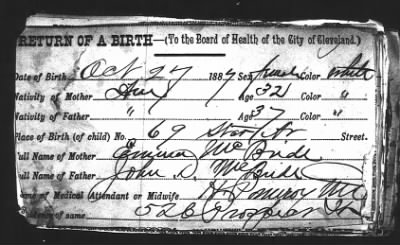 RETURN OF A BIRTH—(To the Board of Health of the City of Cleveland.)
Date of Birth Oct 27 1887 Sex female Color white
Nativity of Mother Am Age 32 Color "
Nativity of Father " Age 37 Color "
Place of Birth (of child) No. 69 Street.
Full Name of Mother Emma McBride
Full Name of Father John D. McBride
Name of Medical Attendant or Midwife H Pomeroy MD
Residence of same 526 Prospect St